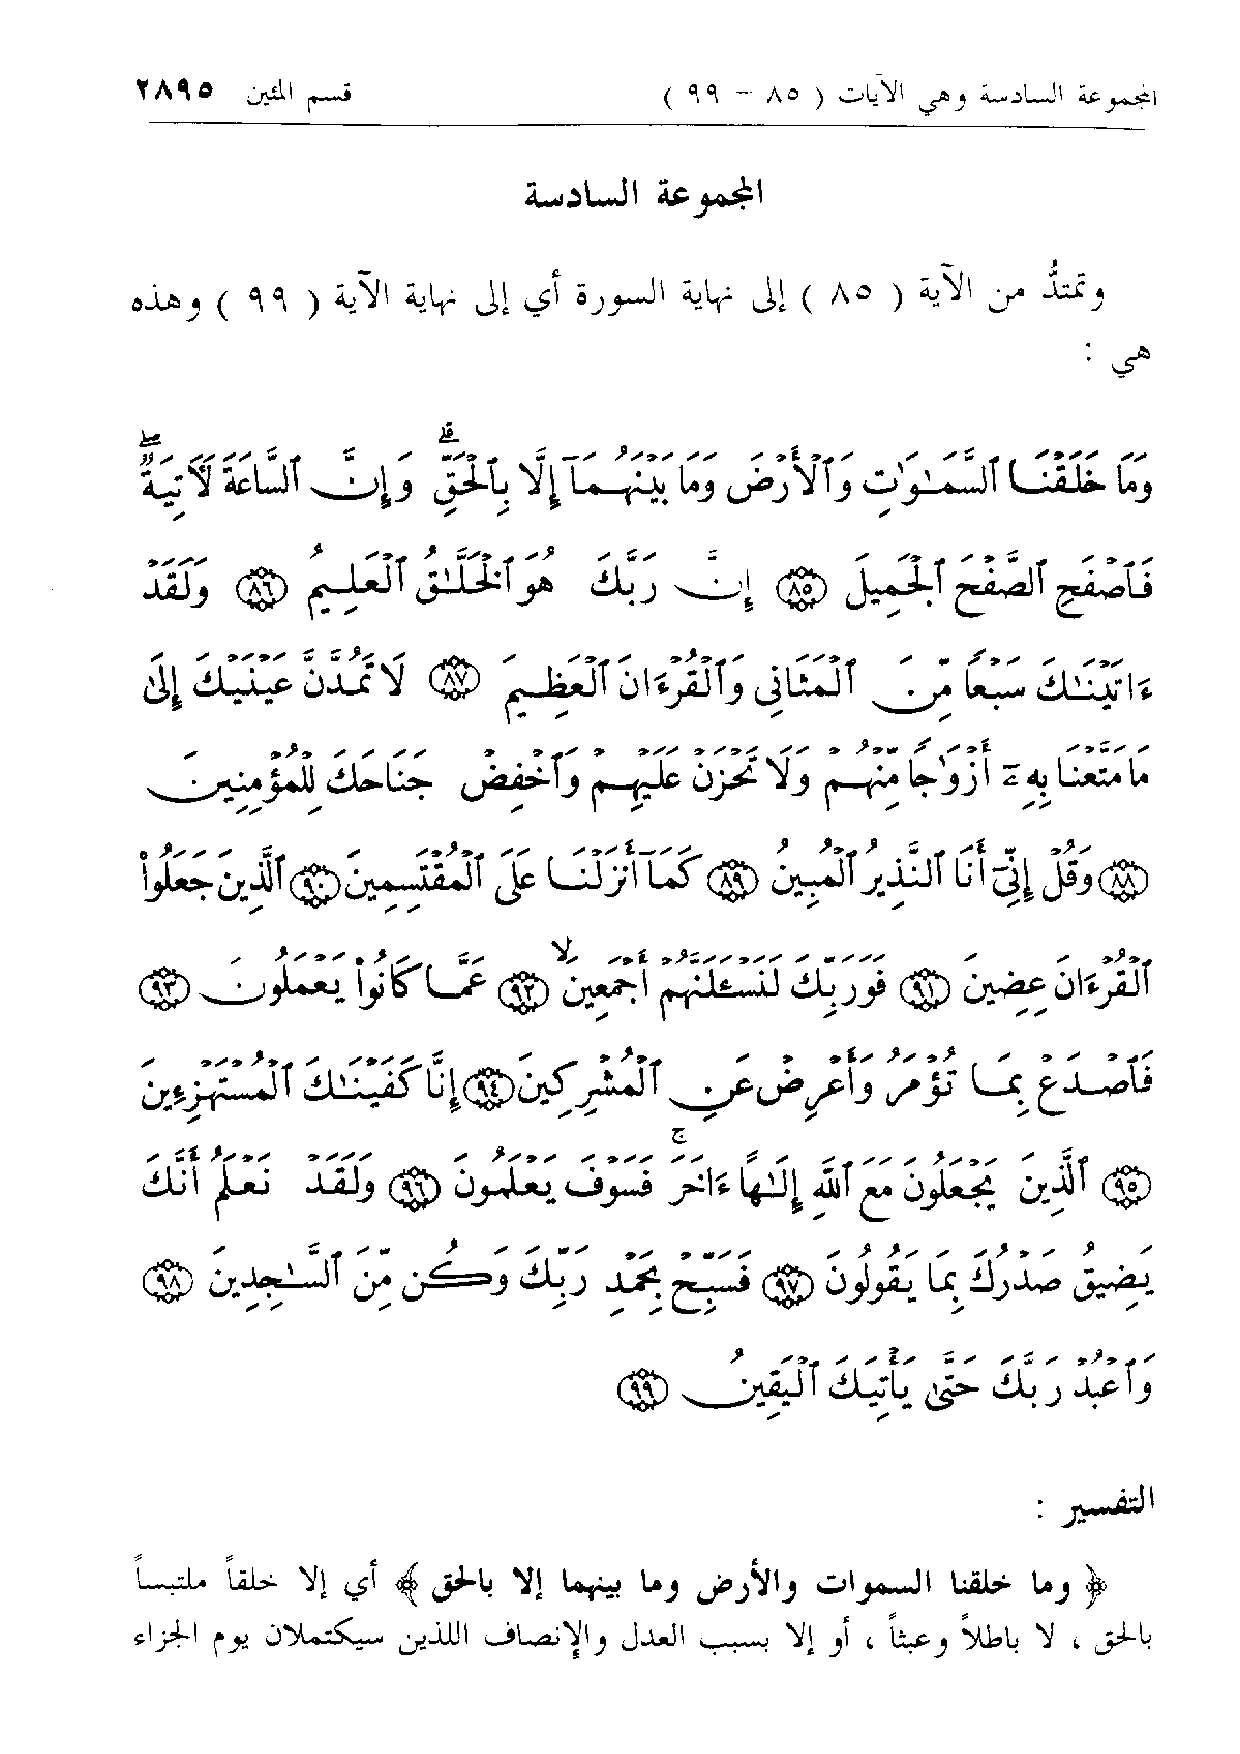 المجموعة السادسة وهي الآيات ( ٨٥ – ٩٩ ) قسم المئين ٢٨٩٥
المجموعة السادسة
وتمتدُّ من الآية ( ٨٥ ) إلى نهاية السورة أي إلى نهاية الآية ( ٩٩ ) وهذه
هي :
وَمَا خَلَقْنَا ٱلسَّمَٰوَٰتِ وَٱلْأَرْضَ وَمَا بَيْنَهُمَآ إِلَّا بِٱلْحَقِّ ۗ وَإِنَّ ٱلسَّاعَةَ لَآتِيَةٌ ۖ
فَٱصْفَحِ ٱلصَّفْحَ ٱلْجَمِيلَ ﴿٨٥﴾ إِنَّ رَبَّكَ هُوَ ٱلْخَلَّٰقُ ٱلْعَلِيمُ ﴿٨٦﴾ وَلَقَدْ
ءَاتَيْنَٰكَ سَبْعًا مِّنَ ٱلْمَثَانِي وَٱلْقُرْءَانَ ٱلْعَظِيمَ ﴿٨٧﴾ لَا تَمُدَّنَّ عَيْنَيْكَ إِلَىٰ
مَا مَتَّعْنَا بِهِۦٓ أَزْوَٰجًا مِّنْهُمْ وَلَا تَحْزَنْ عَلَيْهِمْ وَٱخْفِضْ جَنَاحَكَ لِلْمُؤْمِنِينَ
﴿٨٨﴾ وَقُلْ إِنِّىٓ أَنَا ٱلنَّذِيرُ ٱلْمُبِينُ ﴿٨٩﴾ كَمَآ أَنزَلْنَا عَلَى ٱلْمُقْتَسِمِينَ ﴿٩٠﴾ ٱلَّذِينَ جَعَلُوا۟
ٱلْقُرْءَانَ عِضِينَ ﴿٩١﴾ فَوَرَبِّكَ لَنَسْـَٔلَنَّهُمْ أَجْمَعِينَ ۙ ﴿٩٢﴾ عَمَّا كَانُوا۟ يَعْمَلُونَ ﴿٩٣﴾
فَٱصْدَعْ بِمَا تُؤْمَرُ وَأَعْرِضْ عَنِ ٱلْمُشْرِكِينَ ﴿٩٤﴾ إِنَّا كَفَيْنَٰكَ ٱلْمُسْتَهْزِءِينَ
﴿٩٥﴾ ٱلَّذِينَ يَجْعَلُونَ مَعَ ٱللَّهِ إِلَٰهًا ءَاخَرَ ۚ فَسَوْفَ يَعْلَمُونَ ﴿٩٦﴾ وَلَقَدْ نَعْلَمُ أَنَّكَ
يَضِيقُ صَدْرُكَ بِمَا يَقُولُونَ ﴿٩٧﴾ فَسَبِّحْ بِحَمْدِ رَبِّكَ وَكُن مِّنَ ٱلسَّٰجِدِينَ ﴿٩٨﴾
وَٱعْبُدْ رَبَّكَ حَتَّىٰ يَأْتِيَكَ ٱلْيَقِينُ ﴿٩٩﴾
التفسير :
﴿ وما خلقنا السموات والأرض وما بينهما إلا بالحق ﴾ أي إلا خلقاً ملتبساً
بالحق ، لا باطلاً وعبثاً ، أو إلا بسبب العدل والإنصاف اللذين سيكتملان يوم الجزاء